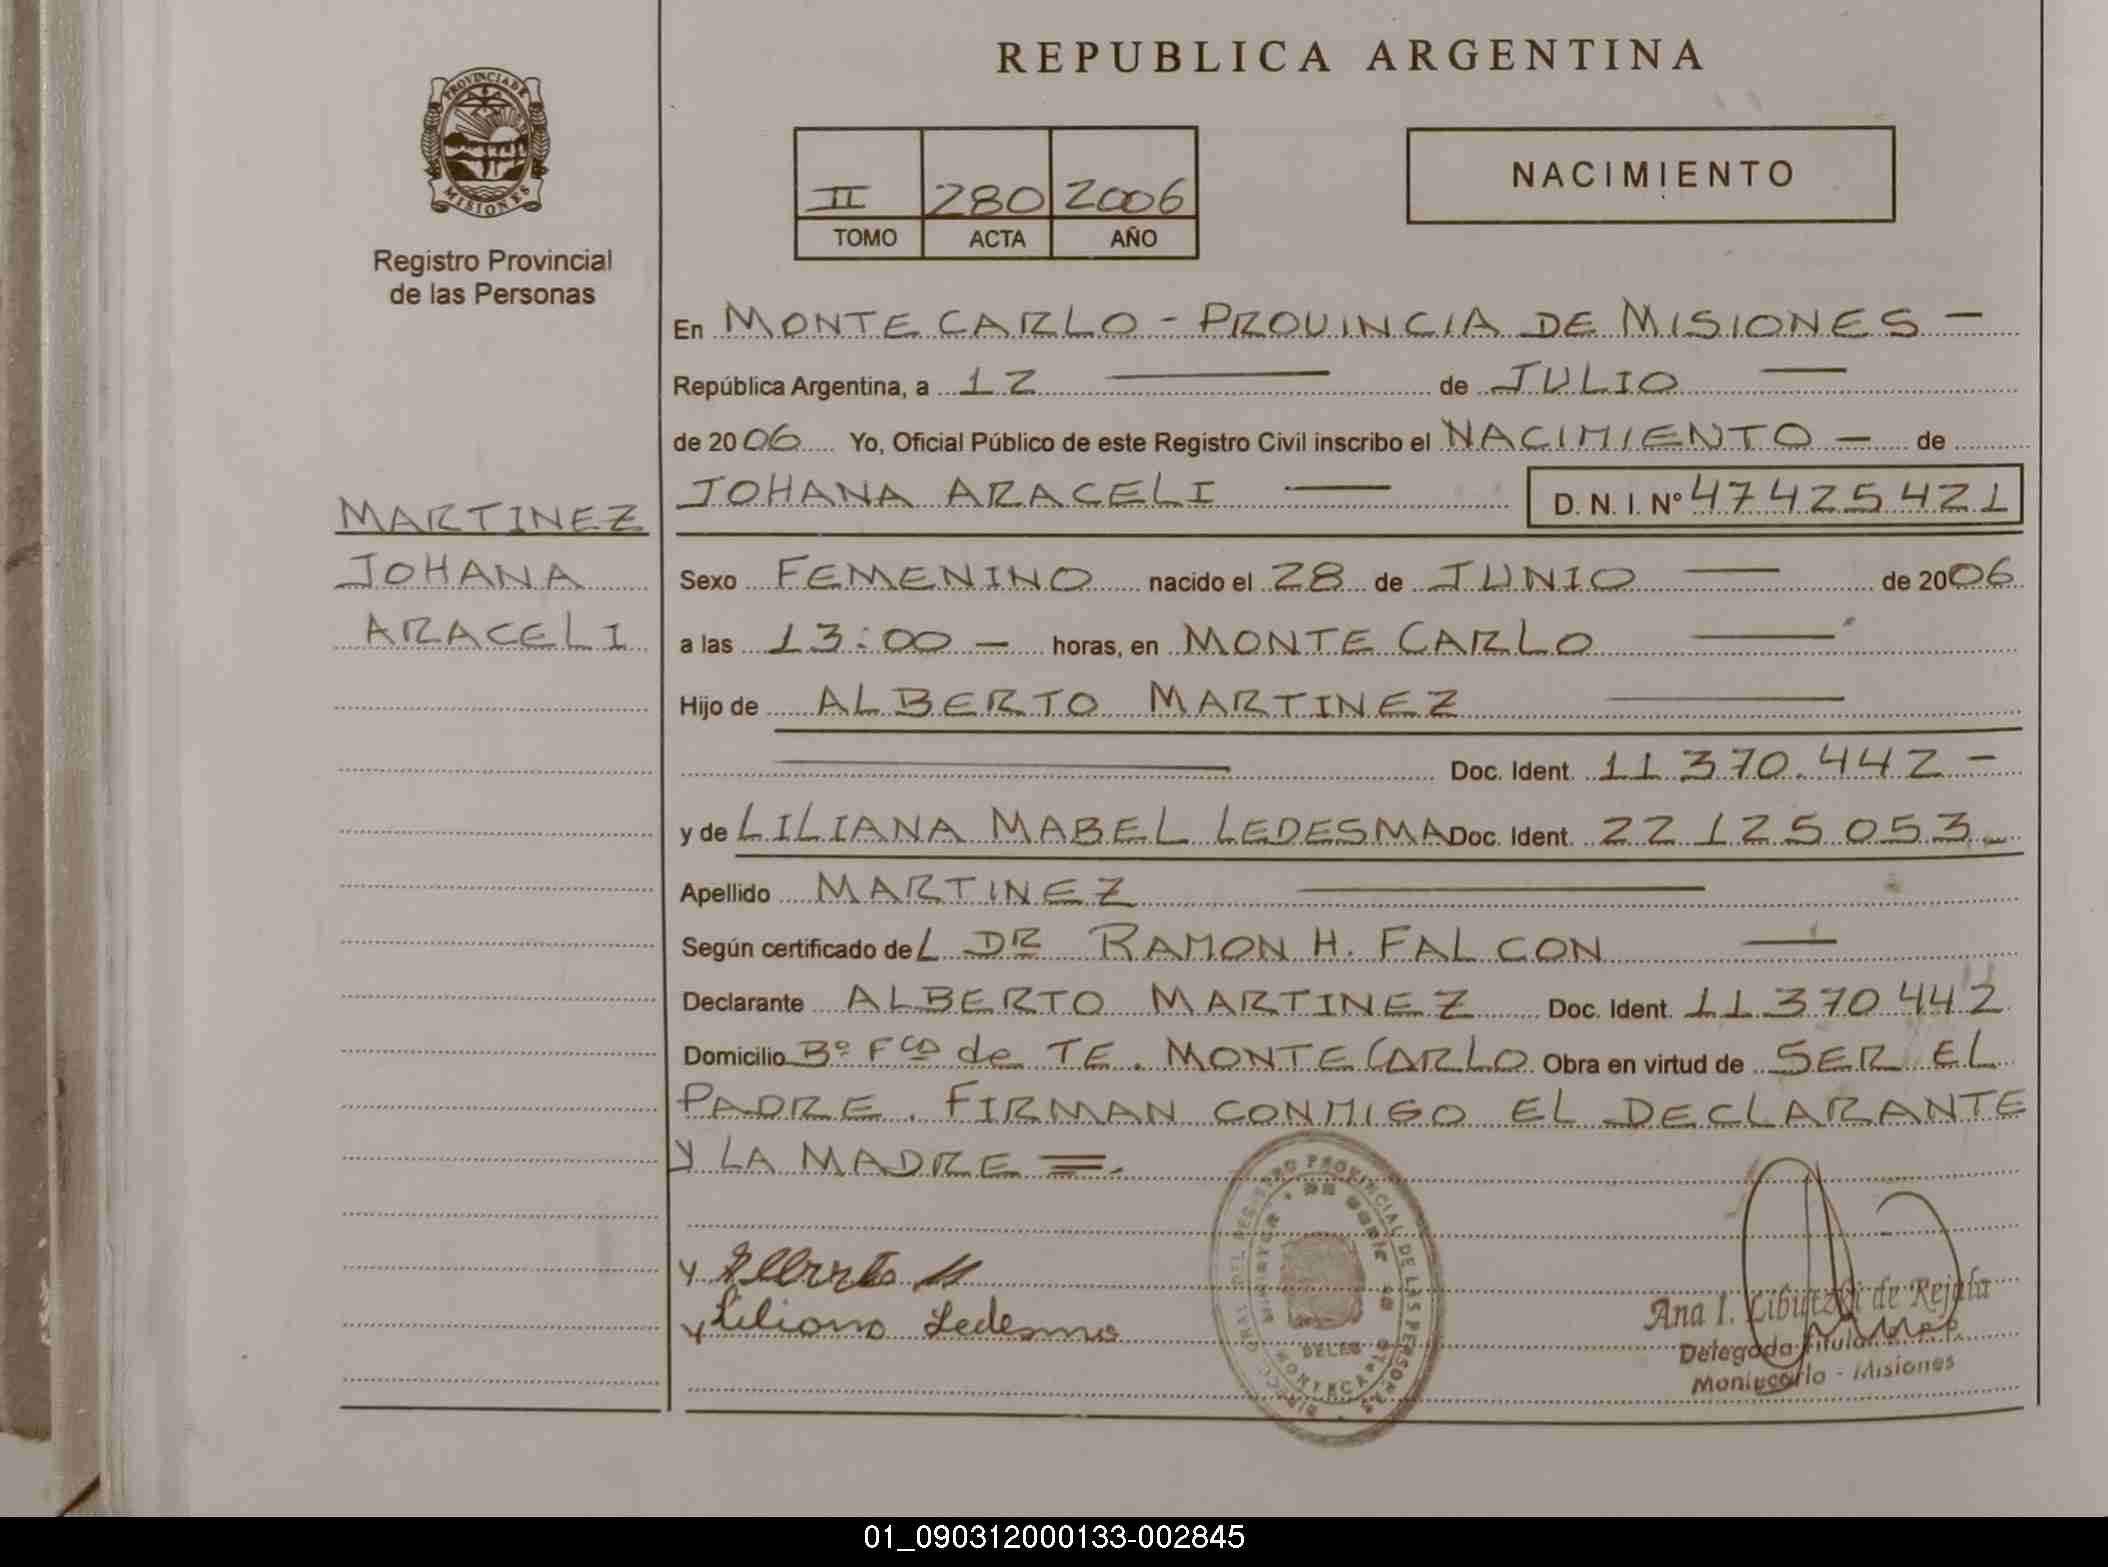 REPUBLICA ARGENTINA
PROVINCIA DE MISIONES
Registro Provincial
de las Personas
II 280 2006
TOMO ACTA AÑO
NACIMIENTO
En MONTECARLO - PROVINCIA DE MISIONES —
República Argentina, a 12 — de JULIO —
de 2006 Yo, Oficial Público de este Registro Civil inscribo el NACIMIENTO — de
JOHANA ARACELI — D. N. I. Nº 47425421
MARTINEZ
JOHANA
ARACELI
Sexo FEMENINO nacido el 28 de JUNIO — de 2006
a las 13:00 — horas, en MONTE CARLO —
Hijo de ALBERTO MARTINEZ —
— Doc. Ident. 11.370.442 —
y de LILIANA MABEL LEDESMA Doc. Ident. 22.125.053 —
Apellido MARTINEZ —
Según certificado del DR RAMON H. FALCON —
Declarante ALBERTO MARTINEZ Doc. Ident. 11.370.442
Domicilio Bº Fco de TE. MONTECARLO Obra en virtud de SER EL
PADRE. FIRMAN CONMIGO EL DECLARANTE
Y LA MADRE =.
Alberto M
Liliana Ledesma
REGISTRO PROVINCIAL DE LAS PERSONAS
Ana I. de Rejala
Delegada Titular R.P.P.
Montecarlo - Misiones
01_090312000133-002845